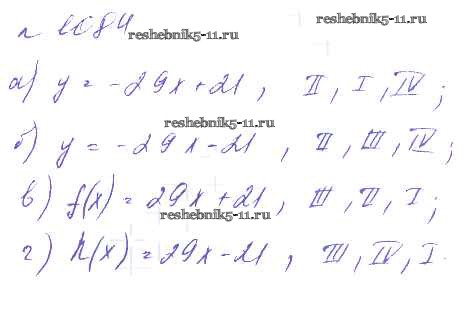 n 1084
reshebnik5-11.ru
reshebnik5-11.ru
а) y = -29x+21, II, I, IV;
reshebnik5-11.ru
б) y = -29x-21, II, III, IV;
в) f(x) = 29x+21, III, II, I;
reshebnik5-11.ru
г) h(x) = 29x-21, III, IV, I.